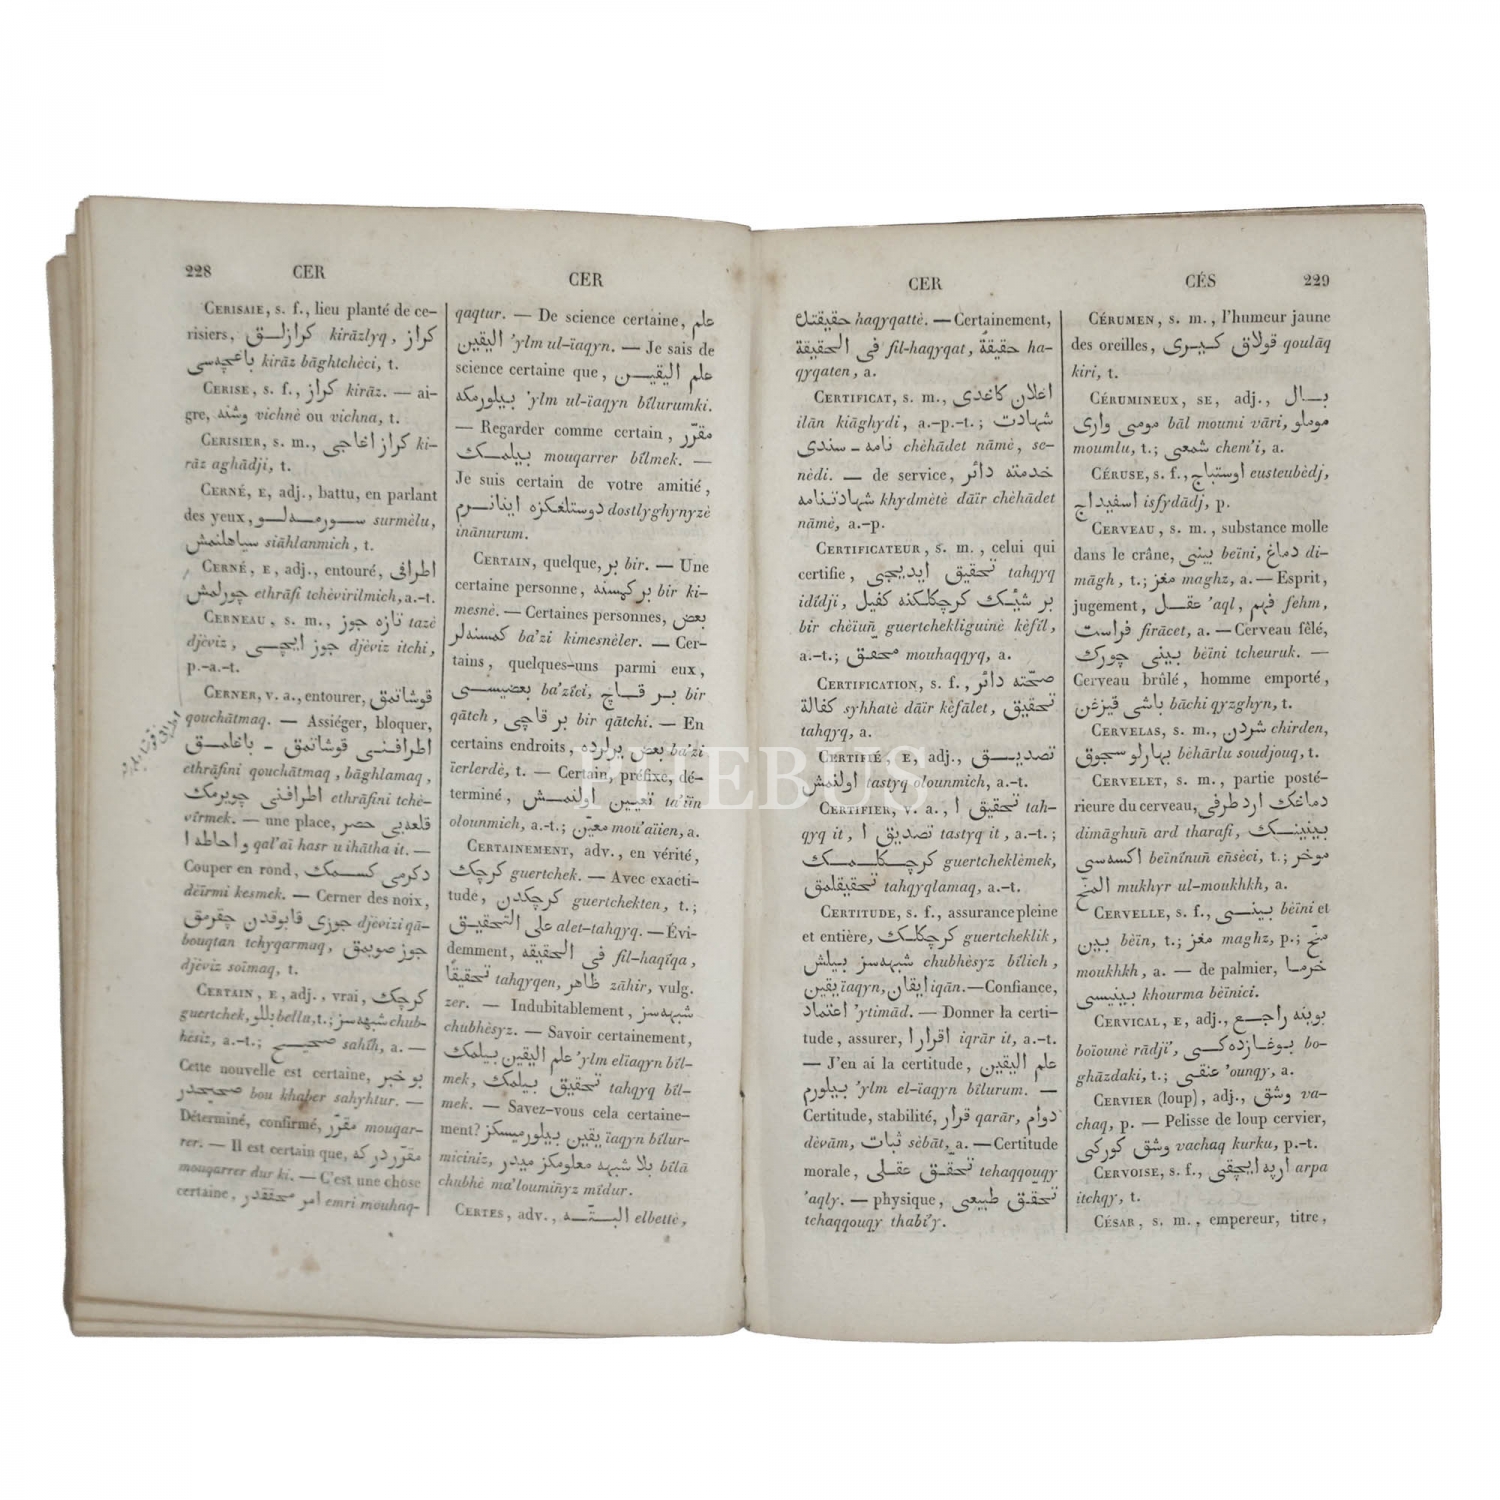 228 CER CER
CERISAIE, s. f., lieu planté de ce-
risiers, كرازلـق kirāzlyq, كراز
باغچه‌سی kirāz bāghtchèci, t.
CERISE, s. f., كراز kirāz. — ai-
gre, وشنه vichnè ou vichna, t.
CERISIER, s. m., كراز اغاجی ki-
rāz aghādji, t.
CERNÉ, E, adj., battu, en parlant
des yeux, سورمه‌لو surmèlu,
سياهلنمش siāhlanmich, t.
CERNÉ, E, adj., entouré, اطرافی
چورلمش ethrāfi tchèvirilmich, a.-t.
CERNEAU, s. m., تازه جوز tazè
djèviz, جوز ايچی djèviz itchi,
p.-a.-t.
CERNER, v. a., entourer, قوشاتمق
qouchātmaq. — Assiéger, bloquer,
اطرافنی قوشاتمق - باغلامق
ethrāfini qouchātmaq, bāghlamaq,
اطرافنی چويرمك ethrāfini tchè-
virmek. — une place, قلعه‌يی حصر
و احاطه ا qal'aï hasr u ihātha it. —
Couper en rond, دكرمی كسمك
dèïrmi kesmek. — Cerner des noix,
جوزی قابوقدن چقرمق djèvizi qā-
bouqtan tchyqarmaq, جوز صويمق
djèviz soïmaq, t.
CERTAIN, E, adj., vrai, كرچك
guertchek, بللو bella, t.; شبهه‌سز chub-
hèsiz, a.-t.; صحيح sahîh, a. —
Cette nouvelle est certaine, بو خبر
صحيحدر bou khaber sahyhtur. —
Déterminé, confirmé, مقرّر mouqar-
rer. — Il est certain que, مقرّردر كه
mouqarrer dur ki. — C'est une chose
certaine, امر محقّقدر emri mouhaq-
qaqtur. — De science certaine, علم
اليقين 'ylm ul-ïaqyn. — Je sais de
science certaine que, علم اليقين
بيلورمكه 'ylm ul-ïaqyn bîlurumki.
— Regarder comme certain, مقرّر
بيلمك mouqarrer bîlmek. —
Je suis certain de votre amitié,
دوستلغكزه اينانرم dostlyghynyzè
inānurum.
CERTAIN, quelque, بر bir. — Une
certaine personne, بر كمسنه bir ki-
mesnè. — Certaines personnes, بعض
كمسنه‌لر ba'zi kimesnèler. — Cer-
tains, quelques-uns parmi eux,
بعضيسی ba'zîci, بر قاچ bir
qātch, بر قاچی bir qātchi. — En
certains endroits, بعض يرلرده ba'zi
ïerlerdè, t. — Certain, préfixe, dé-
terminé, تعيين اولنمش ta'ïîn
olounmich, a.-t.; معيّن mou'aïien, a.
CERTAINEMENT, adv., en vérité,
كرچك guertchek. — Avec exacti-
tude, كرچكدن guertchekten, t.;
على التحقيق alet-tahqyq. — Évi-
demment, فى الحقيقه fil-haqîqa,
تحقيقًا tahqyqen, ظاهر zāhir, vulg.
zer. — Indubitablement, شبهه‌سز
chubhèsyz. — Savoir certainement,
علم اليقين بيلمك 'ylm elïaqyn bîl-
mek, تحقيق بيلمك tahqyq bîl-
mek. — Savez-vous cela certaine-
ment? يقين بيلورميسكز ïaqyn bîlur-
miciniz, بلا شبهه معلومكز ميدر bîlā
chubhè ma'loumiñyz mîdur.
CERTES, adv., البتّه elbettè,
CER CÉS 229
حقيقتك haqyqattè. — Certainement,
فى الحقيقة fil-haqyqat, حقيقةً ha-
qyqaten, a.
CERTIFICAT, s. m., اعلان كاغدی
ilān kiāghydi, a.-p.-t.; شهادت
نامه - سندی chèhādet nāmè, se-
nèdi. — de service, خدمته دائر
شهادتنامه khydmètè dāïr chèhādet
nāmè, a.-p.
CERTIFICATEUR, s. m., celui qui
certifie, تحقيق ايديجی tahqyq
idîdji, بر شيئك كرچكلكنه كفيل
bir chèïuñ guertchekliguinè kèfîl,
a.-t.; محقق mouhaqqyq, a.
CERTIFICATION, s. f., صحّته دائر
كفالة syhhatè dāïr kèfālet, تحقيق
tahqyq, a.
CERTIFIÉ, E, adj., تصديق
اولنمش tastyq olounmich, a.-t.
CERTIFIER, v. a., تحقيق ا tah-
qyq it, تصديق ا tastyq it, a.-t.;
كرچكلمك guertcheklèmek,
تحقيقلمق tahqyqlamaq, a.-t.
CERTITUDE, s. f., assurance pleine
et entière, كرچكلك guertcheklik,
شبهه‌سز بيلش chubhèsyz bîlich,
يقين ïaqyn, ايقان iqān. — Confiance,
اعتماد 'ytimād. — Donner la certi-
tude, assurer, اقرار ا iqrār it, a.-t.
— J'en ai la certitude, علم اليقين
بيلورم 'ylm el-ïaqyn bîlurum. —
Certitude, stabilité, قرار qarār, دوام
dèvām, ثبات sèbāt, a. — Certitude
morale, تحقق عقلی tehaqqouqy
'aqly. — physique, تحقق طبيعی
tchaqqouqy thabî'y.
CÉRUMEN, s. m., l'humeur jaune
des oreilles, قولاق كيری qoulāq
kiri, t.
CÉRUMINEUX, SE, adj., بال
مومی واری bāl moumi vāri, موملو
moumlu, t.; شمعی chem'i, a.
CÉRUSE, s. f., اوستباج eusteubèdj,
اسفيداج isfydādj, p.
CERVEAU, s. m., substance molle
dans le crâne, بينی beïni, دماغ di-
māgh, t.; مغز maghz, a. — Esprit,
jugement, عقل 'aql, فهم fehm,
فراست firācet, a. — Cerveau fêlé,
بينی چورك bèïni tcheuruk. —
Cerveau brûlé, homme emporté,
باشی قيزغن bāchi qyzghyn, t.
CERVELAS, s. m., شردن chirden,
بهارلو سجوق bèhārlu soudjouq, t.
CERVELET, s. m., partie posté-
rieure du cerveau, دماغك ارد طرفی
dimāghuñ ard tharafi, بينينك
اكسه‌سی beïnînuñ eñsèci, t.; موخر
المخّ mukhyr ul-moukhkh, a.
CERVELLE, s. f., بينی bèïni et
بين bèïn, t.; مغز maghz, p.; مخّ
moukhkh, a. — de palmier, خرما
بينيسی khourma bèïnici.
CERVICAL, E, adj., بوينه راجع
boïounè rādji', بوغازده‌كی bo-
ghāzdaki, t.; عنقی 'ounqy, a.
CERVIER (loup), adj., وشق va-
chaq, p. — Pelisse de loup cervier,
وشق كوركی vachaq kurku, p.-t.
CERVOISE, s. f., ارپه ايچقی arpa
itchqy, t.
CÉSAR, s. m., empereur, titre,
PHEBUS